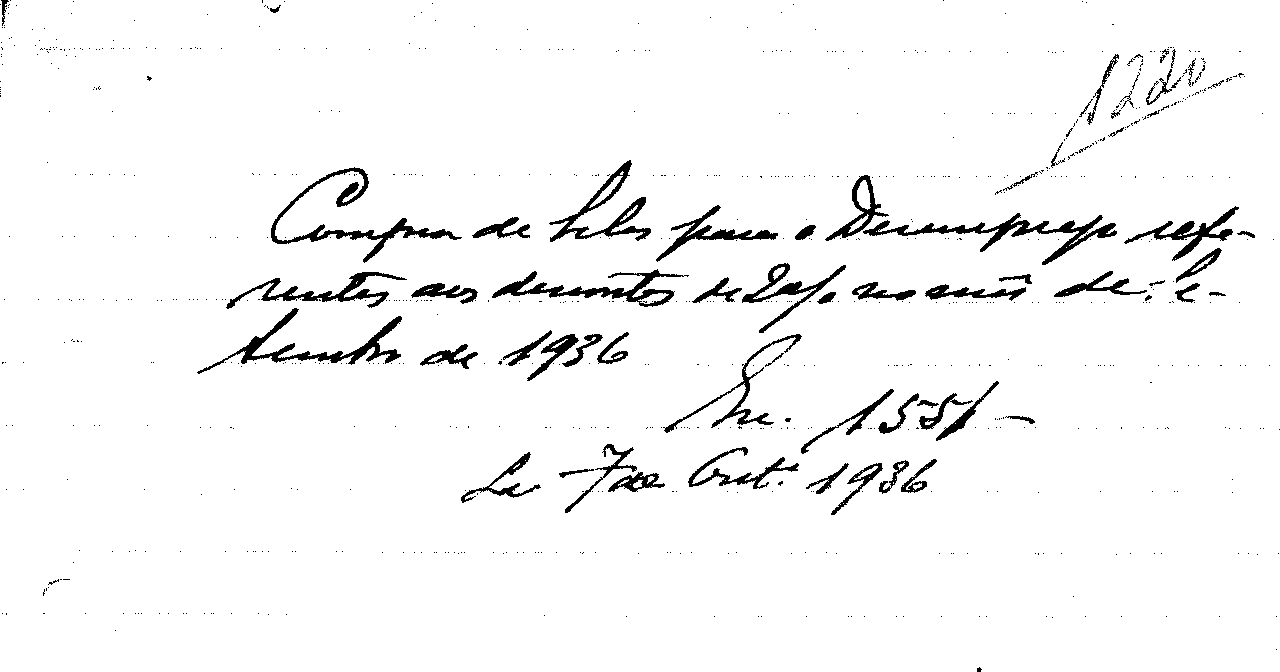 1220
Compra de Selos para o Desemprego refe-
rentes aos descontos de 2% no mês de Se-
tembro de 1936
Esc. 155$—
Lx 7 de Out.º 1936